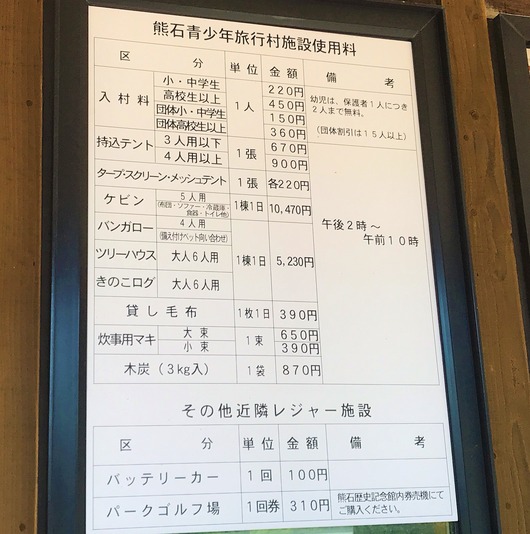 熊石青少年旅行村施設使用料
区 分 単位 金額 備 考
入村料 小・中学生 1人 220円 幼児は、保護者1人につき
2人まで無料。
高校生以上 450円
団体小・中学生 150円
団体高校生以上 360円 (団体割引は15人以上)
持込テント 3人用以下 1張 670円
4人用以上 900円
タープ・スクリーン・メッシュテント 1張 各220円
ケビン 5人用 1棟1日 10,470円
(布団・ソファー・冷蔵庫・
食器・トイレ他)
バンガロー 4人用 1棟1日 5,230円
(備え付けベット向い合わせ)
ツリーハウス 大人6人用
きのこログ 大人6人用
午後2時~
午前10時
貸し毛布 1枚1日 390円
炊事用マキ 大束 1束 650円
小束 390円
木炭(3kg入) 1袋 870円
その他近隣レジャー施設
区 分 単位 金額 備 考
バッテリーカー 1回 100円
パークゴルフ場 1回券 310円 熊石歴史記念館内券売機にて
ご購入ください。